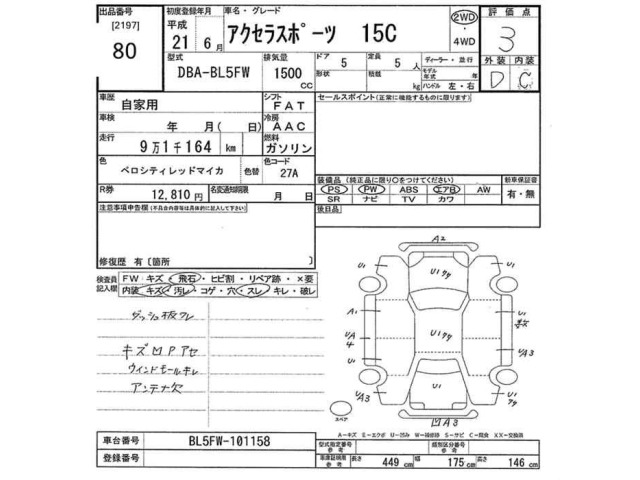 出品番号 初度登録年月 車名・グレード 評価点
[2197] 平成 アクセラスポーツ 15C 2WD 3
80 21年 6月 4WD
型式 排気量 ドア 5 定員 5人 ディーラー・並行 外装 内装
DBA-BL5FW 1500 CC 形状 積載 kg モデル年式 年 ハンドル 左・右 D C
車歴 自家用 シフト FAT セールスポイント(正常に機能するものに限ります)
車検 年 月( 日) 冷房 AAC
走行 9万1千164 km 燃料 ガソリン
色 ベロシティレッドマイカ 色替 色コード 27A
装備品 (純正品に限り○をつけてください) 新車保証書
R券 12,810円 名変通知期限 月 日 PS PW ABS エアB AW 有・無
SR ナビ TV カワ
注意事項申告欄(不具合内容等は具体的に記入して下さい) 後日品
修復歴 有〔箇所 〕
検査員記入欄 FW キズ・飛石・ヒビ割・リペア跡・×要
内装 キズ・汚レ・コゲ・穴・スレ・キレ・破レ
ダッシュ板ワレ
キズ凹Pアセ
ウインドモールキレ
アンテナ欠
A2
U1
U1
A1
U1
UA4
UA3
U1
U1
UA3
凹A3
スペア
A-キズ E-エクボ U-凹み W-補修跡 S-サビ C-腐食 XX-交換済
車台番号 BL5FW-101158 型式指定番号 参考 類別区分番号 参考
登録番号 車庫証明用 参考 長さ 449cm 幅 175cm 高さ 146cm